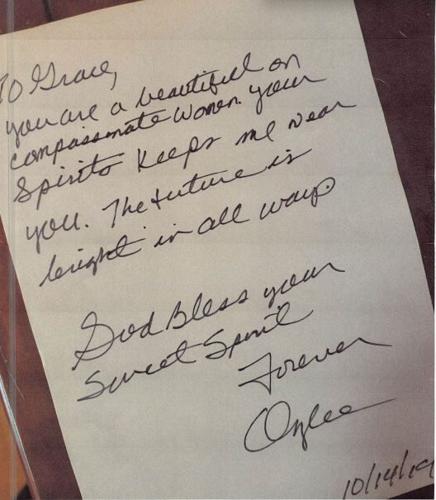 To Grace,
you are a beautiful on
compassionate women. your
Spirits Keeps me near
you. The future is
bright in all ways.
God Bless your
Sweet Spirit
Forever
10/14/19